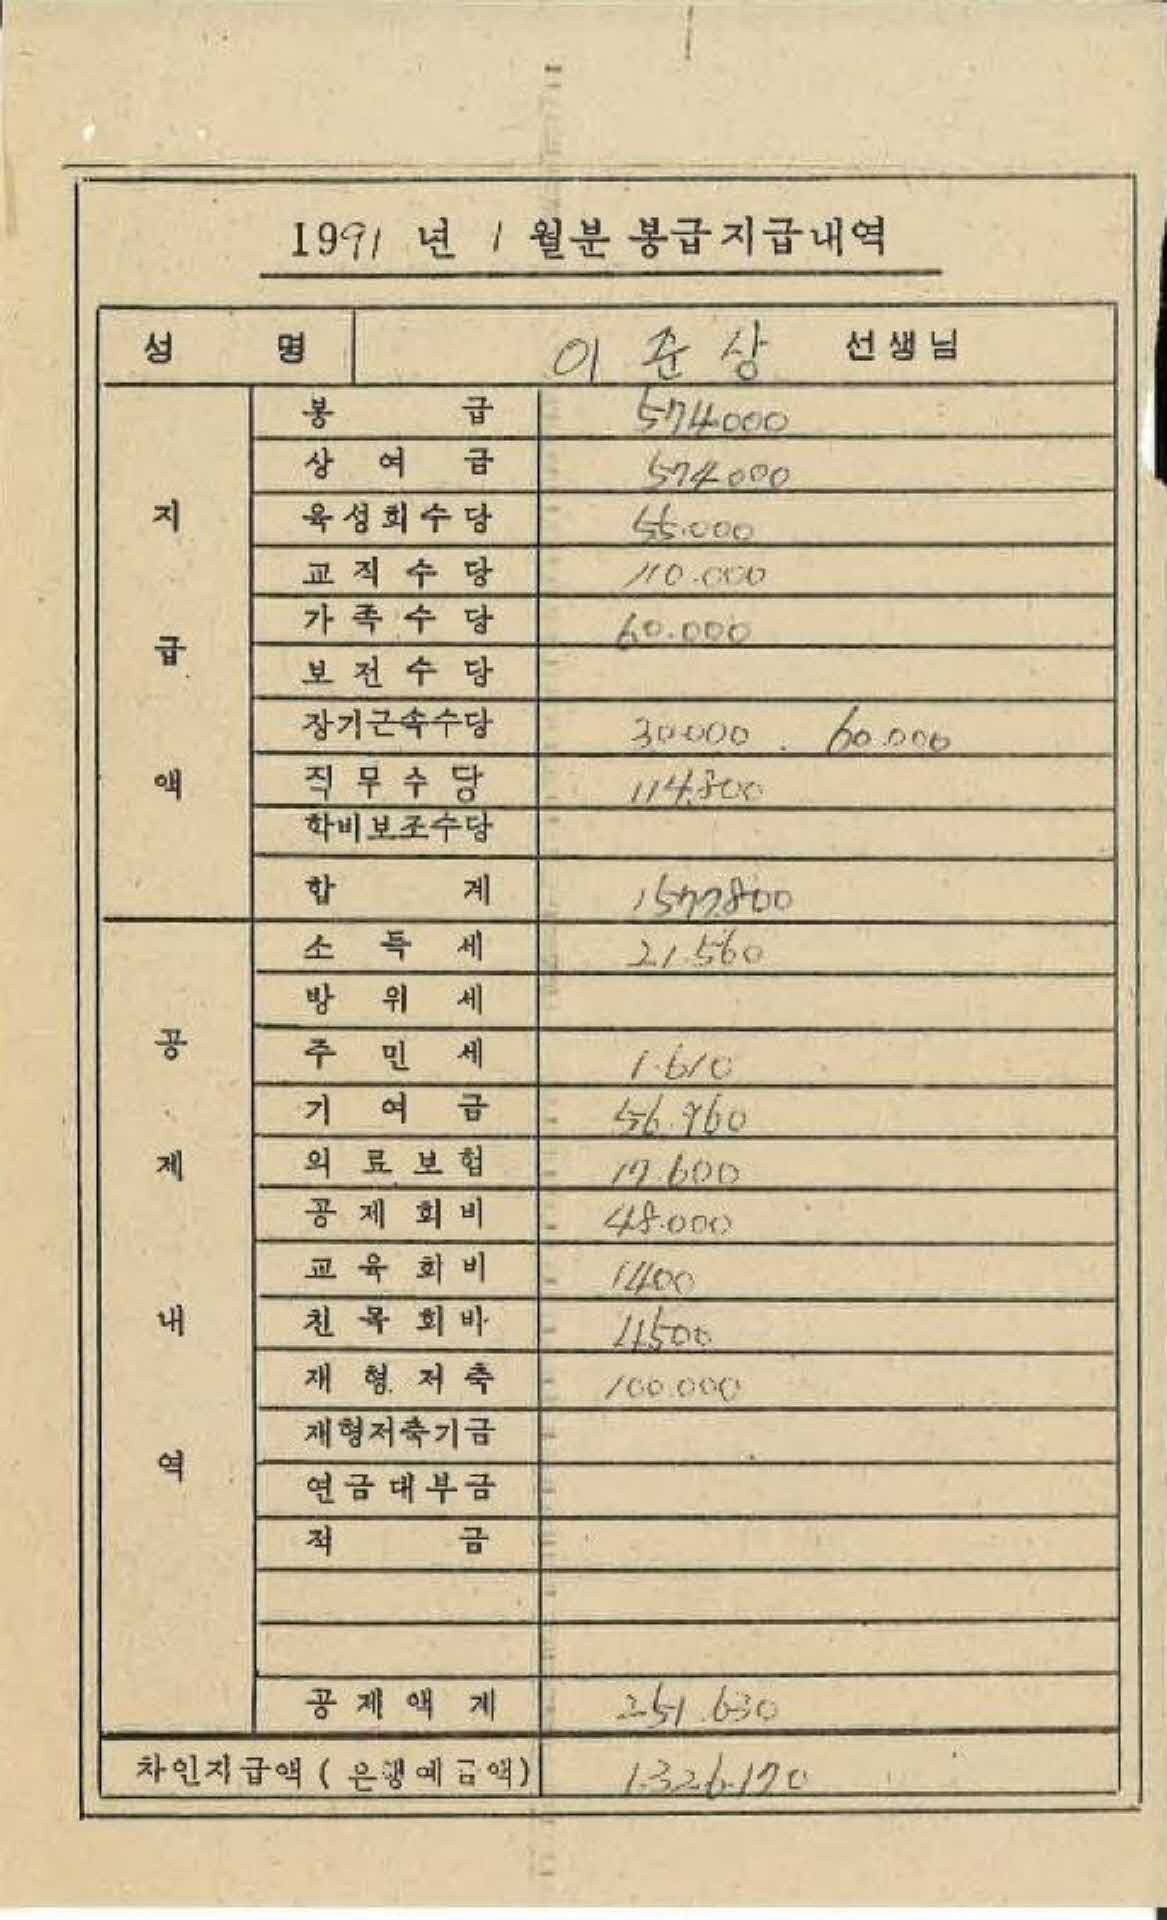 1991 년 1 월분 봉급지급내역
성 명 이 준 상 선생님
지 급 액
봉 급 574.000
상 여 금 574.000
육성회수당 55.000
교 직 수 당 110.000
가 족 수 당 60.000
보 전 수 당
장기근속수당 30.000 . 60.000
직 무 수 당 114.800
학비보조수당
합 계 1577.800
공 제 내 역
소 득 세 21.560
방 위 세
주 민 세 1.610
기 여 금 56.960
의 료 보 험 17.600
공 제 회 비 48.000
교 육 회 비 1400
친 목 회 비 4500
재 형 저 축 100.000
재형저축기금
연금대부금
적 금
공 제 액 계 251.630
차인지급액 ( 은행예금액) 1.326.170